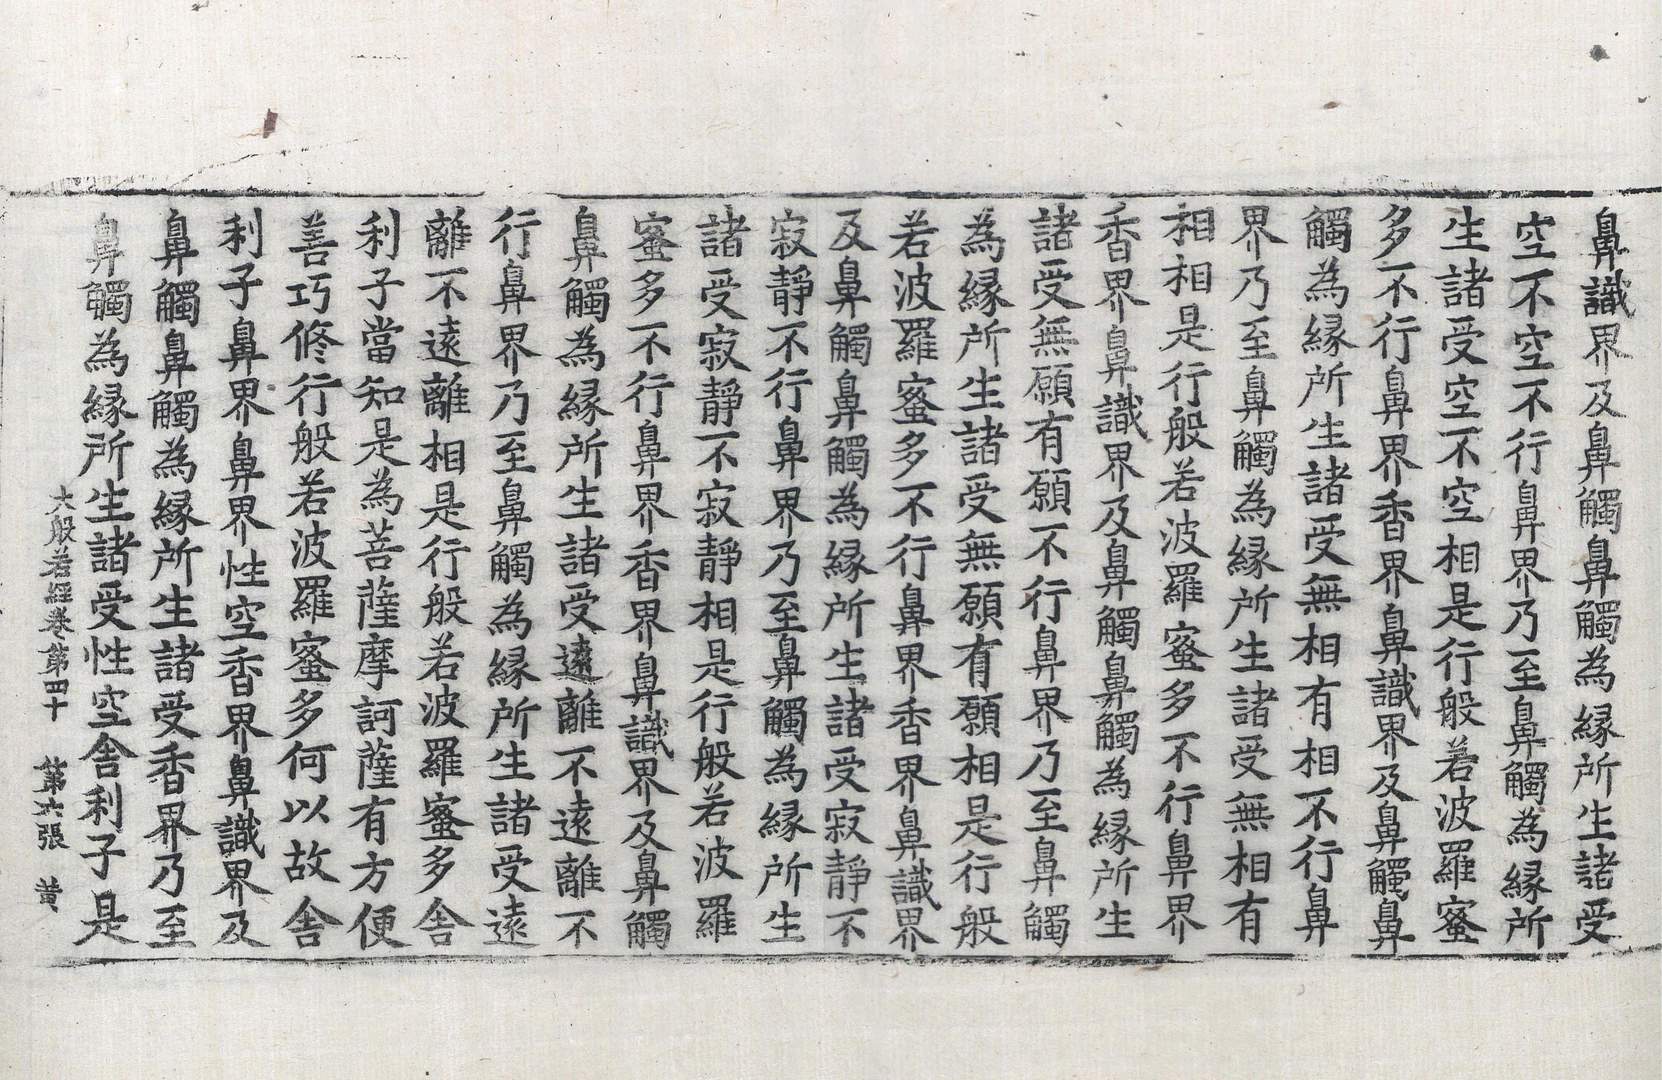 鼻識界及鼻觸鼻觸為縁所生諸受
空不空不行鼻界乃至鼻觸為縁所
生諸受空不空相是行般若波羅蜜
多不行鼻界香界鼻識界及鼻觸鼻
觸為縁所生諸受無相有相不行鼻
界乃至鼻觸為縁所生諸受無相有
相相是行般若波羅蜜多不行鼻界
香界鼻識界及鼻觸鼻觸為縁所生
諸受無願有願不行鼻界乃至鼻觸
為縁所生諸受無願有願相是行般
若波羅蜜多不行鼻界香界鼻識界
及鼻觸鼻觸為縁所生諸受寂靜不
寂靜不行鼻界乃至鼻觸為縁所生
諸受寂靜不寂靜相是行般若波羅
蜜多不行鼻界香界鼻識界及鼻觸
鼻觸為縁所生諸受遠離不遠離不
行鼻界乃至鼻觸為縁所生諸受遠
離不遠離相是行般若波羅蜜多舍
利子當知是為菩薩摩訶薩有方便
善巧修行般若波羅蜜多何以故舍
利子鼻界鼻界性空香界鼻識界及
鼻觸鼻觸為縁所生諸受香界乃至
鼻觸為縁所生諸受性空舍利子是
大般若經卷第四十 第六張 黄